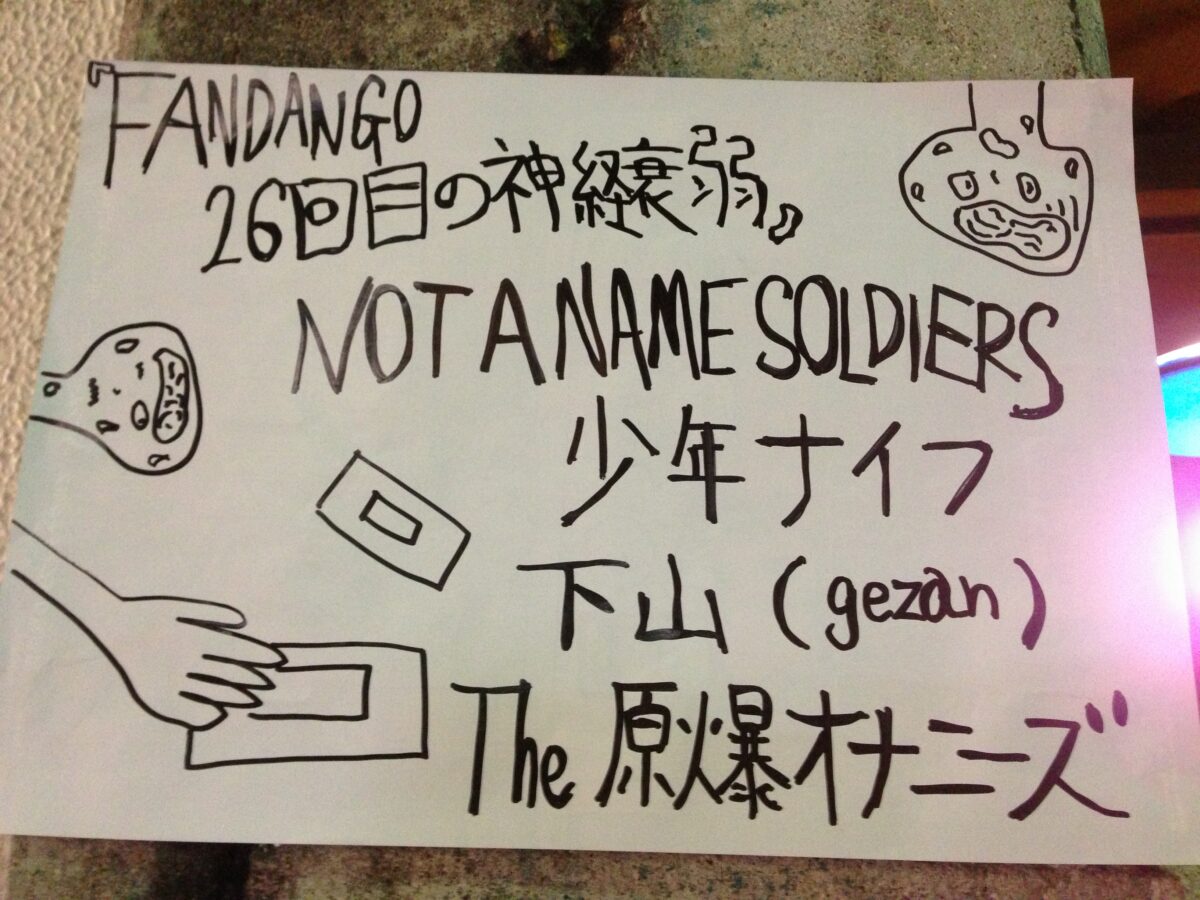 『FANDANGO
26回目の神経衰弱』
NOT A NAME SOLDIERS
少年ナイフ
下山(gezan)
The 原爆オナニーズ